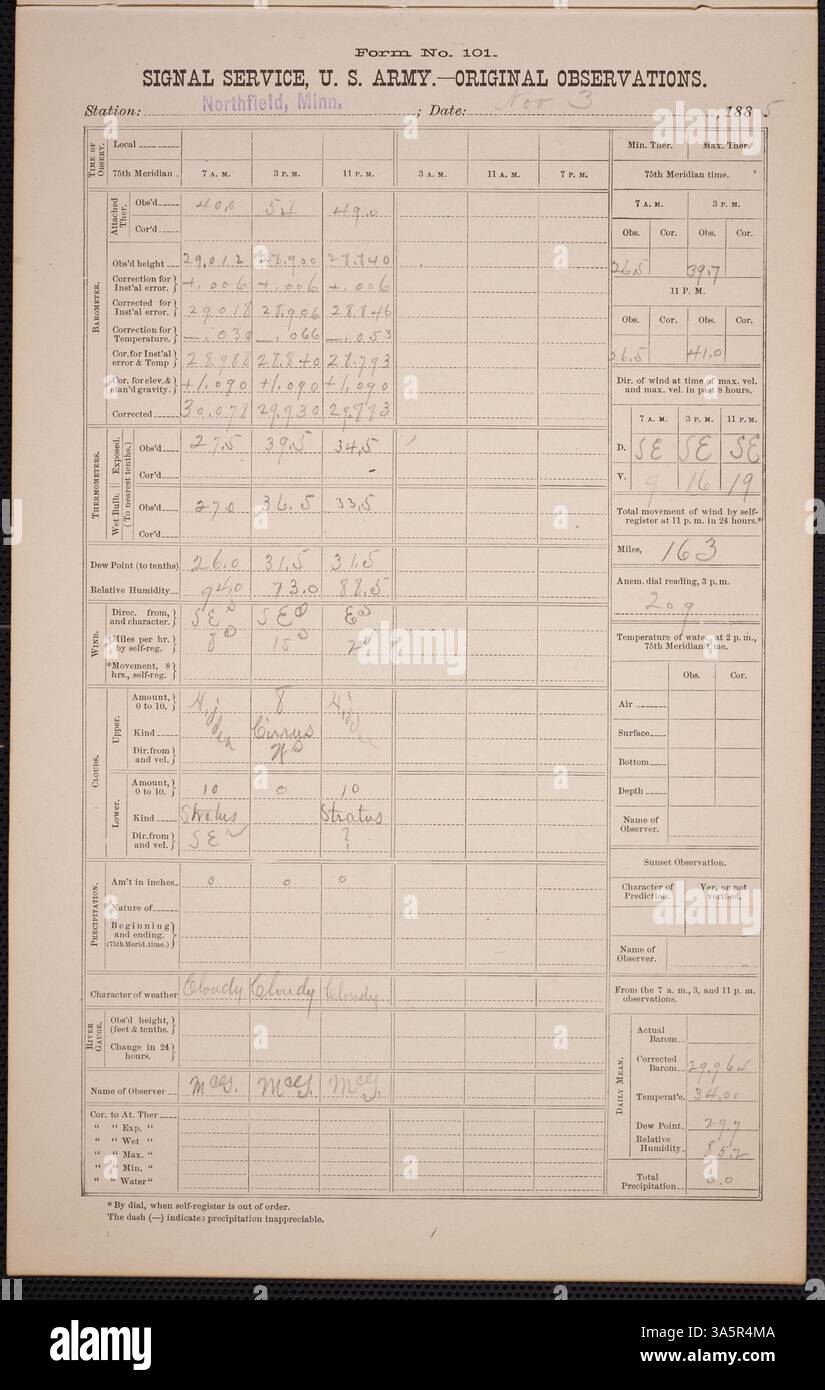 Form No. 101.
SIGNAL SERVICE, U. S. ARMY.—ORIGINAL OBSERVATIONS.
Station: Northfield, Minn. ; Date: Nov 3 , 1885
TIME OF OBSERV.
Local
75th Meridian 7 A. M. 3 P. M. 11 P. M. 3 A. M. 11 A. M. 7 P. M.
BAROMETER.
Attached Ther.
Obs'd 40.0 51 49.0
Cor'd
Obs'd height 29.012 28.900 28.840
Correction for Inst'al error. +.006 +.006 +.006
Corrected for Inst'al error. 29.018 28.906 28.846
Correction for Temperature. —.030 —.066 —.053
Cor. for Inst'al error & Temp 28.988 28.840 28.793
Cor. for elev. & stan'd gravity. +1.090 +1.090 +1.090
Corrected 30.078 29.930 29.883
THERMOMETERS.
Exposed. Wet Bulb. (To nearest tenths.)
Obs'd 27.5 39.5 34.5
Cor'd
Obs'd 27.0 36.5 33.5
Cor'd
Dew Point (to tenths) 26.0 31.5 31.5
Relative Humidity 94.0 73.0 88.5
WIND.
Direc. from, and character. SE SE E
Miles per hr. by self-reg. 8 15 2
*Movement, 8 hrs., self-reg.
CLOUDS.
Upper.
Amount, 0 to 10. 8
Kind Cirrus
Dir. from and vel. N
Lower.
Amount, 0 to 10. 10 0 10
Kind Stratus Stratus
Dir. from and vel. SE ?
PRECIPITATION.
Am't in inches 0 0 0
Nature of
Beginning and ending. (75th Merid. time.)
Character of weather Cloudy Cloudy Cloudy
RIVER GAUGE.
Obs'd height, (feet & tenths.)
Change in 24 hours.
Name of Observer McG. McG. McG.
Cor. to At. Ther
" " Exp. "
" " Wet "
" " Max. "
" " Min. "
" " Water "
* By dial, when self-register is out of order.
The dash (—) indicates precipitation inappreciable.
Min. Ther. Max. Ther.
75th Meridian time.
7 A. M. 3 P. M.
Obs. Cor. Obs. Cor.
26.5 39.7
11 P. M.
Obs. Cor. Obs. Cor.
26.5 41.0
Dir. of wind at time of max. vel. and max. vel. in past 8 hours.
7 A. M. 3 P. M. 11 P. M.
D. SE SE SE
V. 9 16 19
Total movement of wind by self-register at 11 p. m. in 24 hours.*
Miles, 163
Anem. dial reading, 3 p. m.
209
Temperature of water at 2 p. m., 75th Meridian time.
Obs. Cor.
Air
Surface
Bottom
Depth
Name of Observer.
Sunset Observation.
Character of Prediction. Ver. or not verified.
Name of Observer.
From the 7 a. m., 3, and 11 p. m. observations.
DAILY MEAN.
Actual Barom
Corrected Barom 29.964
Temperat'e. 34.00
Dew Point 29.7
Relative Humidity 85.2
Total Precipitation 0.0
alamy
Image ID: 3A5R4MA
www.alamy.com